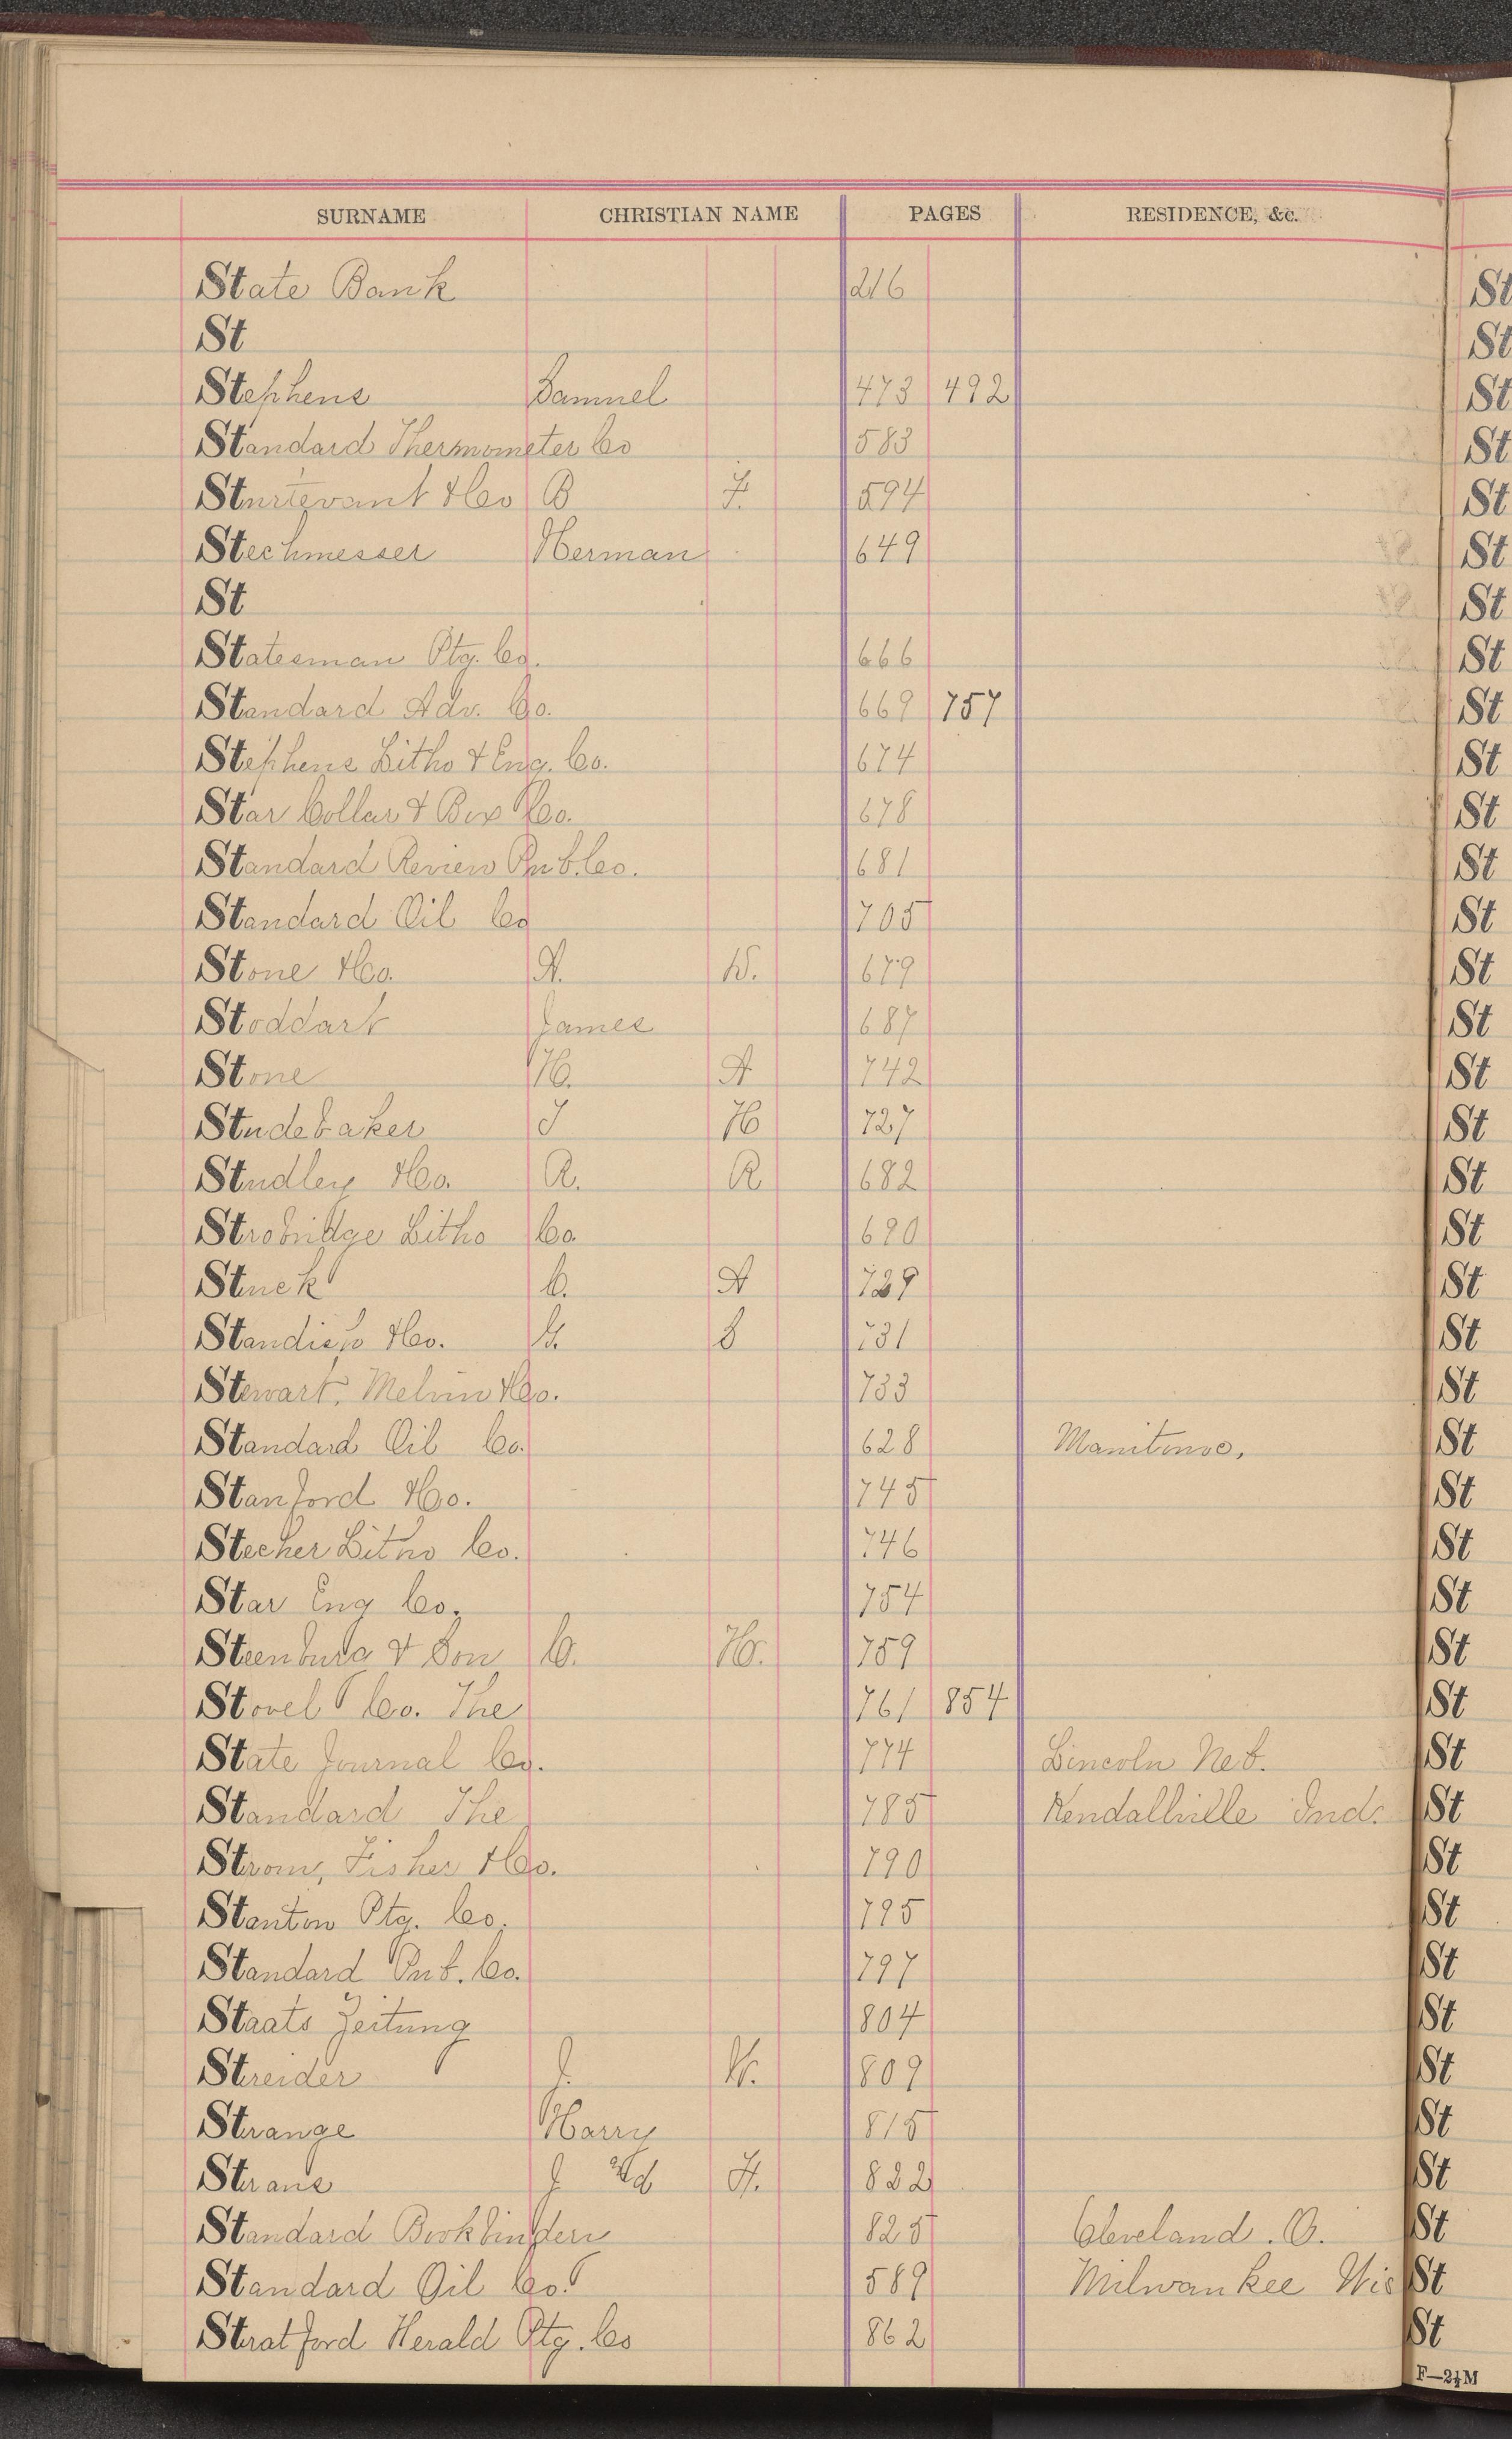 SURNAME CHRISTIAN NAME PAGES RESIDENCE, &c.
State Bank 216 St
St St
Stephens Samuel 473 492 St
Standard Thermometer Co 583 St
Sturtevant & Co B F. 594 St
Stechmesser Herman 649 St
St St
Statesman Ptg. Co. 666 St
Standard Adv. Co. 669 757 St
Stephens Litho & Eng. Co. 674 St
Star Collar & Box Co. 678 St
Standard Review Pub. Co. 681 St
Standard Oil Co 705 St
Stone & Co. A. W. 679 St
Stoddart James 687 St
Stone H. A 742 St
Studebaker J H 727 St
Studley & Co. A. R 682 St
Strobridge Litho Co. 690 St
Stuck C. A 729 St
Standish & Co. G. S 731 St
Stewart, Melvin & Co. 733 St
Standard Oil Co. 628 Manitowoc, St
Stanford & Co. 745 St
Stecher Litho Co. 746 St
Star Eng Co. 754 St
Steenburg & Son C. H. 759 St
Stovel Co. The 761 854 St
State Journal Co. 774 Lincoln Neb. St
Standard The 785 Kendallville Ind. St
Strom, Fisher & Co. 790 St
Stanton Ptg. Co. 795 St
Standard Pub. Co. 797 St
Staats Zeitung 804 St
Streider J. W. 809 St
Strange Harry 815 St
Straus J H. 822 St
Standard Bookbindery 825 Cleveland. O. St
Standard Oil Co. 589 Milwaukee Wis St
Stratford Herald Ptg. Co 862 St
F—2½M